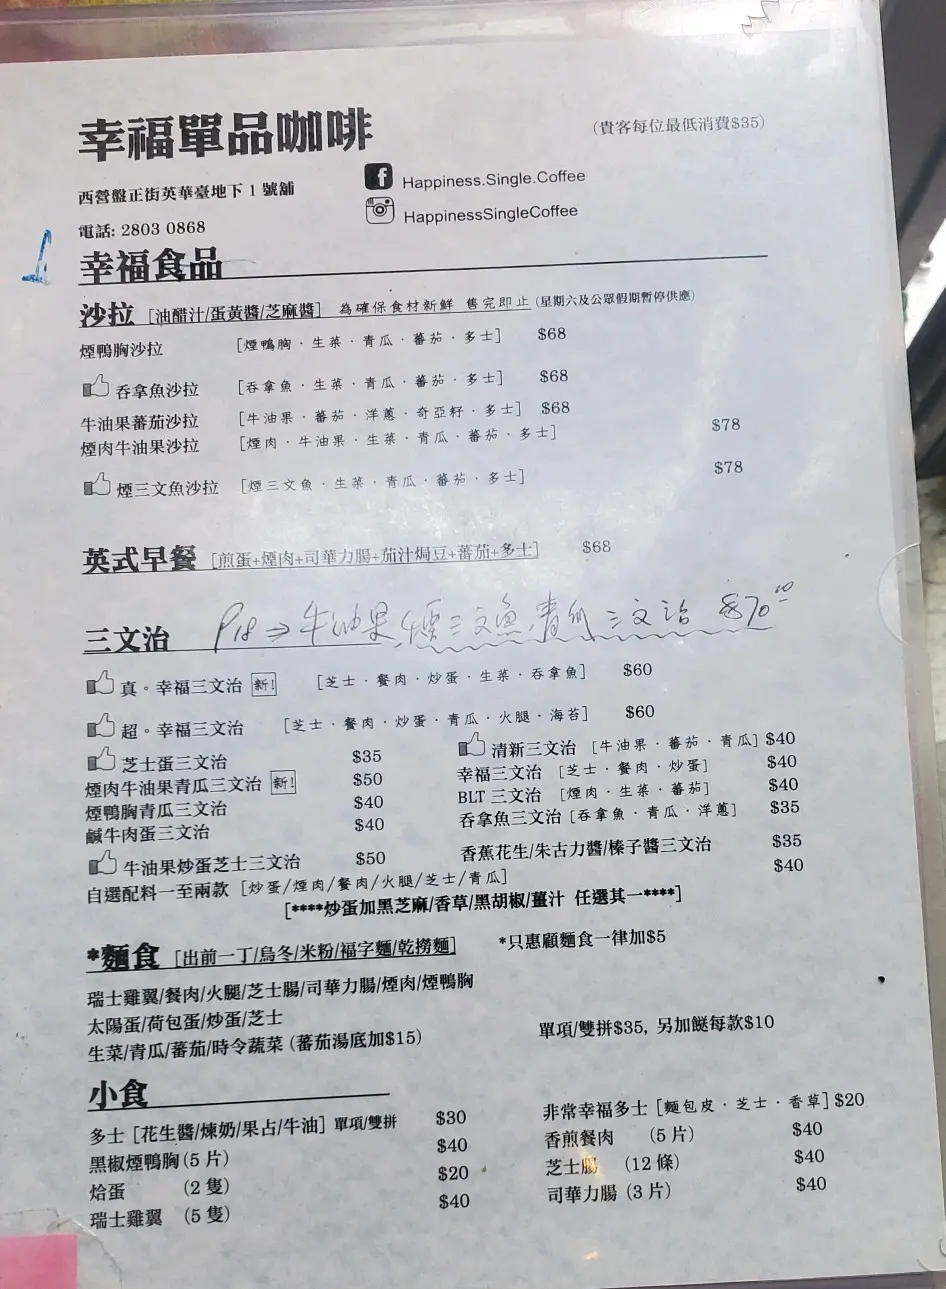 幸福單品咖啡
(貴客每位最低消費$35)
西營盤正街英華臺地下 1 號舖
Happiness.Single.Coffee
電話: 2803 0868
HappinessSingleCoffee
幸福食品
沙拉 [油醋汁/蛋黃醬/芝麻醬] 為確保食材新鮮 售完即止 (星期六及公眾假期暫停供應)
煙鴨胸沙拉 [煙鴨胸．生菜．青瓜．蕃茄．多士] $68
吞拿魚沙拉 [吞拿魚．生菜．青瓜．蕃茄．多士] $68
牛油果蕃茄沙拉 [牛油果．蕃茄．洋蔥．奇亞籽．多士] $68
煙肉牛油果沙拉 [煙肉．牛油果．生菜．青瓜．蕃茄．多士] $78
煙三文魚沙拉 [煙三文魚．生菜．青瓜．蕃茄．多士] $78
英式早餐 [煎蛋+煙肉+司華力腸+茄汁焗豆+蕃茄+多士] $68
三文治 P18⇒牛油果煙三文魚青瓜三文治 $70
真。幸福三文治 新! [芝士．餐肉．炒蛋．生菜．吞拿魚] $60
超。幸福三文治 [芝士．餐肉．炒蛋．青瓜．火腿．海苔] $60
芝士蛋三文治 $35 清新三文治 [牛油果．蕃茄．青瓜] $40
煙肉牛油果青瓜三文治 新! $50 幸福三文治 [芝士．餐肉．炒蛋] $40
煙鴨胸青瓜三文治 $40 BLT 三文治 [煙肉．生菜．蕃茄] $40
鹹牛肉蛋三文治 $40 吞拿魚三文治 [吞拿魚．青瓜．洋蔥] $35
牛油果炒蛋芝士三文治 $50 香蕉花生/朱古力醬/榛子醬三文治 $35
自選配料一至兩款 [炒蛋/煙肉/餐肉/火腿/芝士/青瓜] $40
[****炒蛋加黑芝麻/香草/黑胡椒/薑汁 任選其一****]
*麵食 [出前一丁/烏冬/米粉/福字麵/乾撈麵] *只惠顧麵食一律加$5
瑞士雞翼/餐肉/火腿/芝士腸/司華力腸/煙肉/煙鴨胸
太陽蛋/荷包蛋/炒蛋/芝士
生菜/青瓜/蕃茄/時令蔬菜 (蕃茄湯底加$15) 單項/雙拼$35, 另加餸每款$10
小食
多士 [花生醬/煉奶/果占/牛油] 單項/雙拼 $30 非常幸福多士 [麵包皮．芝士．香草] $20
黑椒煙鴨胸 (5 片) $40 香煎餐肉 (5 片) $40
烚蛋 (2 隻) $20 芝士腸 (12 條) $40
瑞士雞翼 (5 隻) $40 司華力腸 (3 片) $40